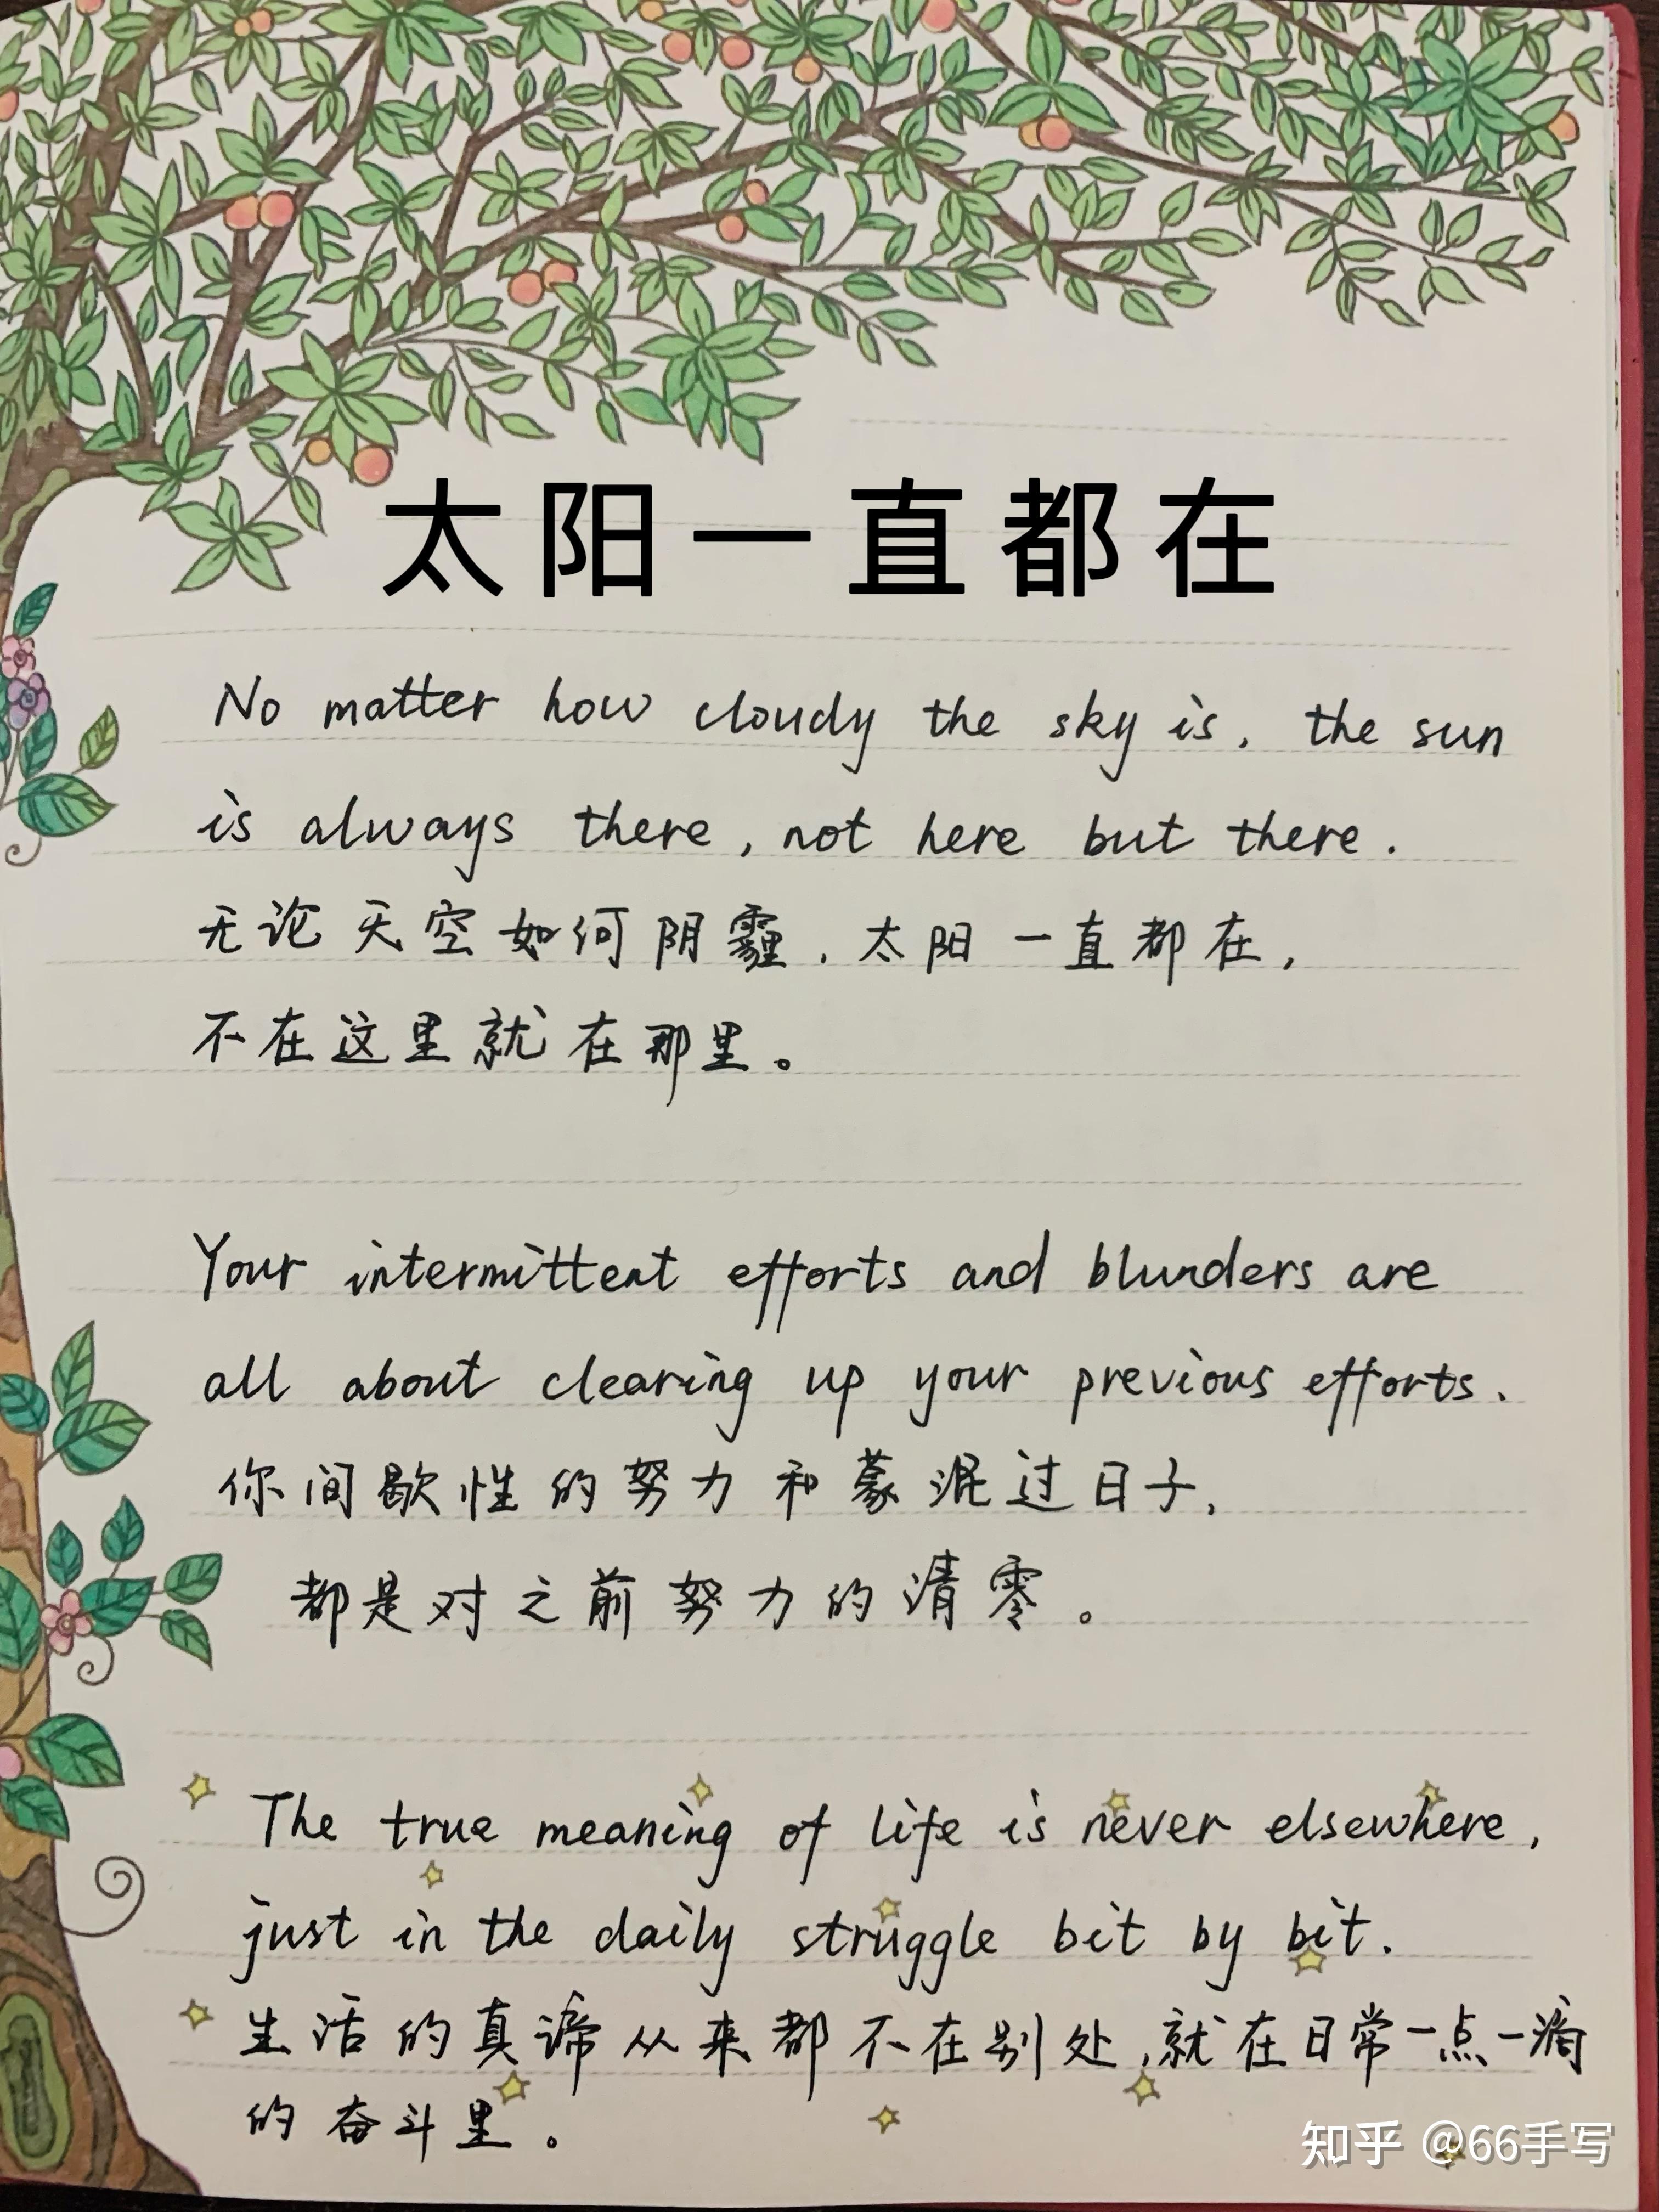 太阳一直都在
No matter how cloudy the sky is, the sun
is always there, not here but there.
无论天空如何阴霾,太阳一直都在,
不在这里就在那里。
Your intermittent efforts and blunders are
all about clearing up your previous efforts.
你间歇性的努力和蒙混过日子,
都是对之前努力的清零。
The true meaning of life is never elsewhere,
just in the daily struggle bit by bit.
生活的真谛从来都不在别处,就在日常一点一滴
的奋斗里。
知乎 @66手写